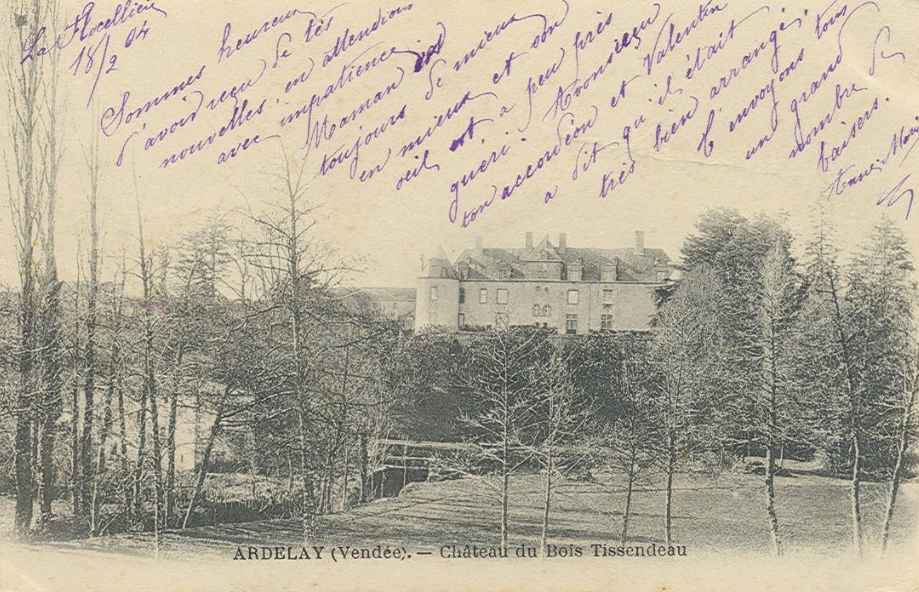 La Flocellière
18/2 04
Sommes heureux
d'avoir reçu de tes
nouvelles en attendions
avec impatience
Maman va
toujours de mieux
en mieux et son
oeil est a peu près
guéri.
ton accordéon et Valentin
a dit qu'il était
très bien arrangé.
T'envoyons tous
un grand
nombre de
baisers.
ARDELAY (Vendée). — Château du Bois Tissendeau